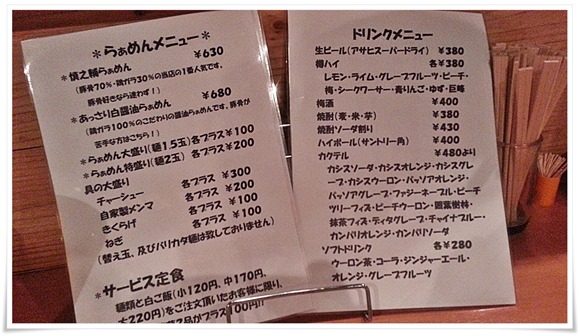 *らぁめんメニュー*
*慎之輔らぁめん ￥630
(豚骨70%・鶏ガラ30%の当店の1番人気です。
豚骨好きなら迷わず!)
*あっさり白醤油らぁめん ￥680
(鶏ガラ100%のこだわりの醤油らぁめんです。豚骨が
苦手な方はこちら!)
*らぁめん大盛り(麺1.5玉)各プラス￥100
*らぁめん特盛り(麺2玉) 各プラス￥200
具の大盛り
チャーシュー 各プラス ￥300
自家製メンマ 各プラス ￥200
きくらげ 各プラス ￥100
ねぎ 各プラス ￥100
(替え玉、及びバリカタ麺は致しておりません)
*サービス定食
麺類と白ご飯(小120円、中170円、
大220円)をご注文頂いたお客様に限り、
品がプラス100円!!
ドリンクメニュー
生ビール(アサヒスーパードライ) ￥380
樽ハイ 各￥380
レモン・ライム・グレープフルーツ・ピーチ・
梅・シークワーサー・青りんご・ゆず・巨峰
梅酒 ￥400
焼酎(麦・米・芋) ￥380
焼酎ソーダ割り ￥430
ハイボール(サントリー角) ￥400
カクテル ￥480より
カシスソーダ・カシスオレンジ・カシスグレ
ープ・カシスウーロン・パッソアオレンジ・
パッソアグレープ・ファジーネーブル・ピーチ
ツリーフィズ・ピーチウーロン・照葉樹林・
抹茶フィズ・ディタグレープ・チャイナブルー・
カンパリオレンジ・カンパリソーダ
ソフトドリンク 各￥280
ウーロン茶・コーラ・ジンジャーエール・
オレンジ・グレープフルーツ